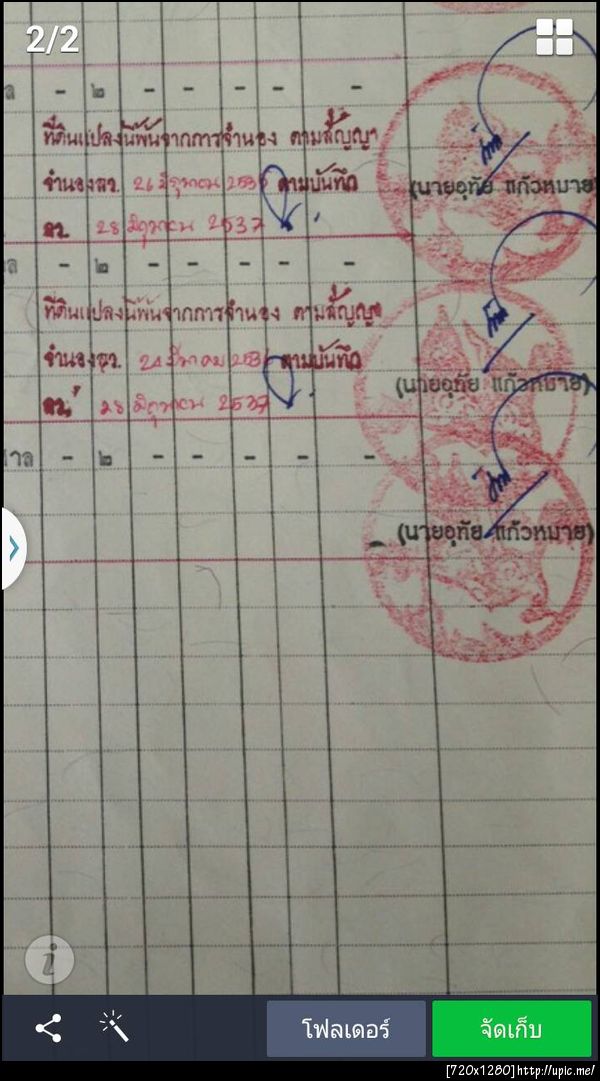 2/2
- ๒ - - - - -
ที่ดินแปลงนี้พ้นจากการจำนอง ตามสัญญา
จำนองลว. 26 มิถุนายน ตามบันทึก
(นายอุทัย แก้วหมาย)
ลว. 28 มิถุนายน 2537
- ๒ - - - - -
ที่ดินแปลงนี้พ้นจากการจำนอง ตามสัญญา
จำนองลว. มีนาคม ตามบันทึก
(นายอุทัย แก้วหมาย)
ลว. 28 มิถุนายน 2537
- ๒ - - - - -
(นายอุทัย แก้วหมาย)
โฟลเดอร์
จัดเก็บ
[720x1280]http://upic.me/